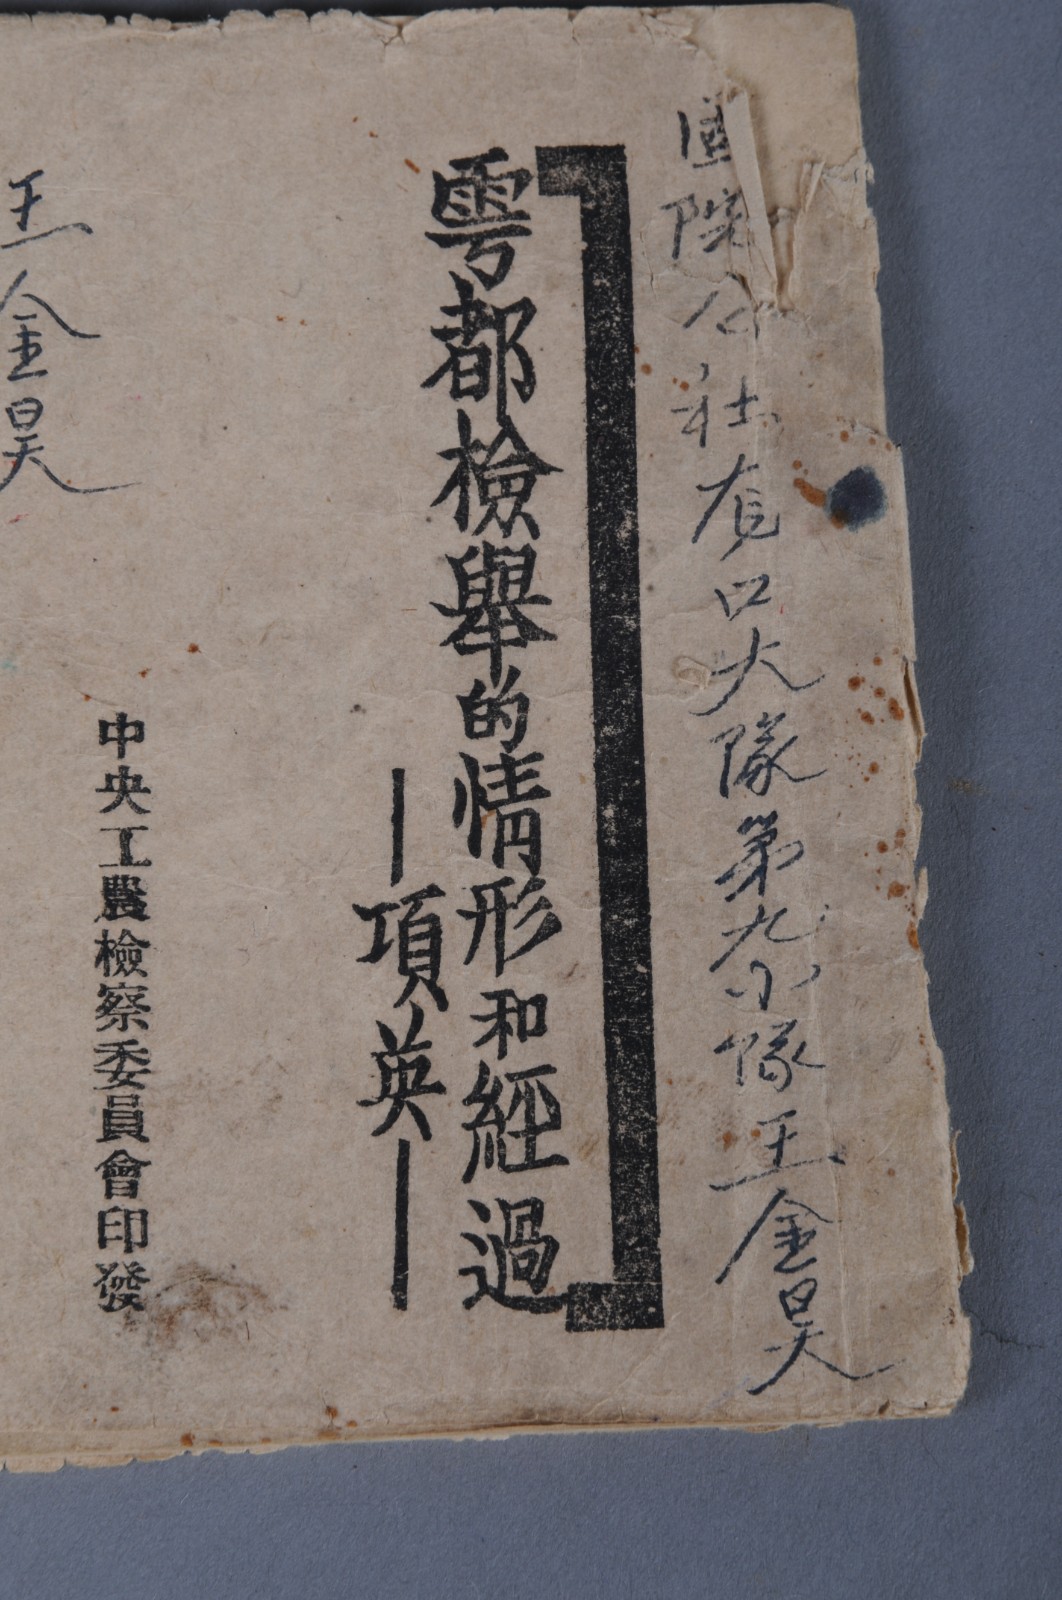 院公社有口大隊第九小隊王金昊
雩都檢舉的情形和經過
—項英—
中央工農檢察委員會印發
王金昊